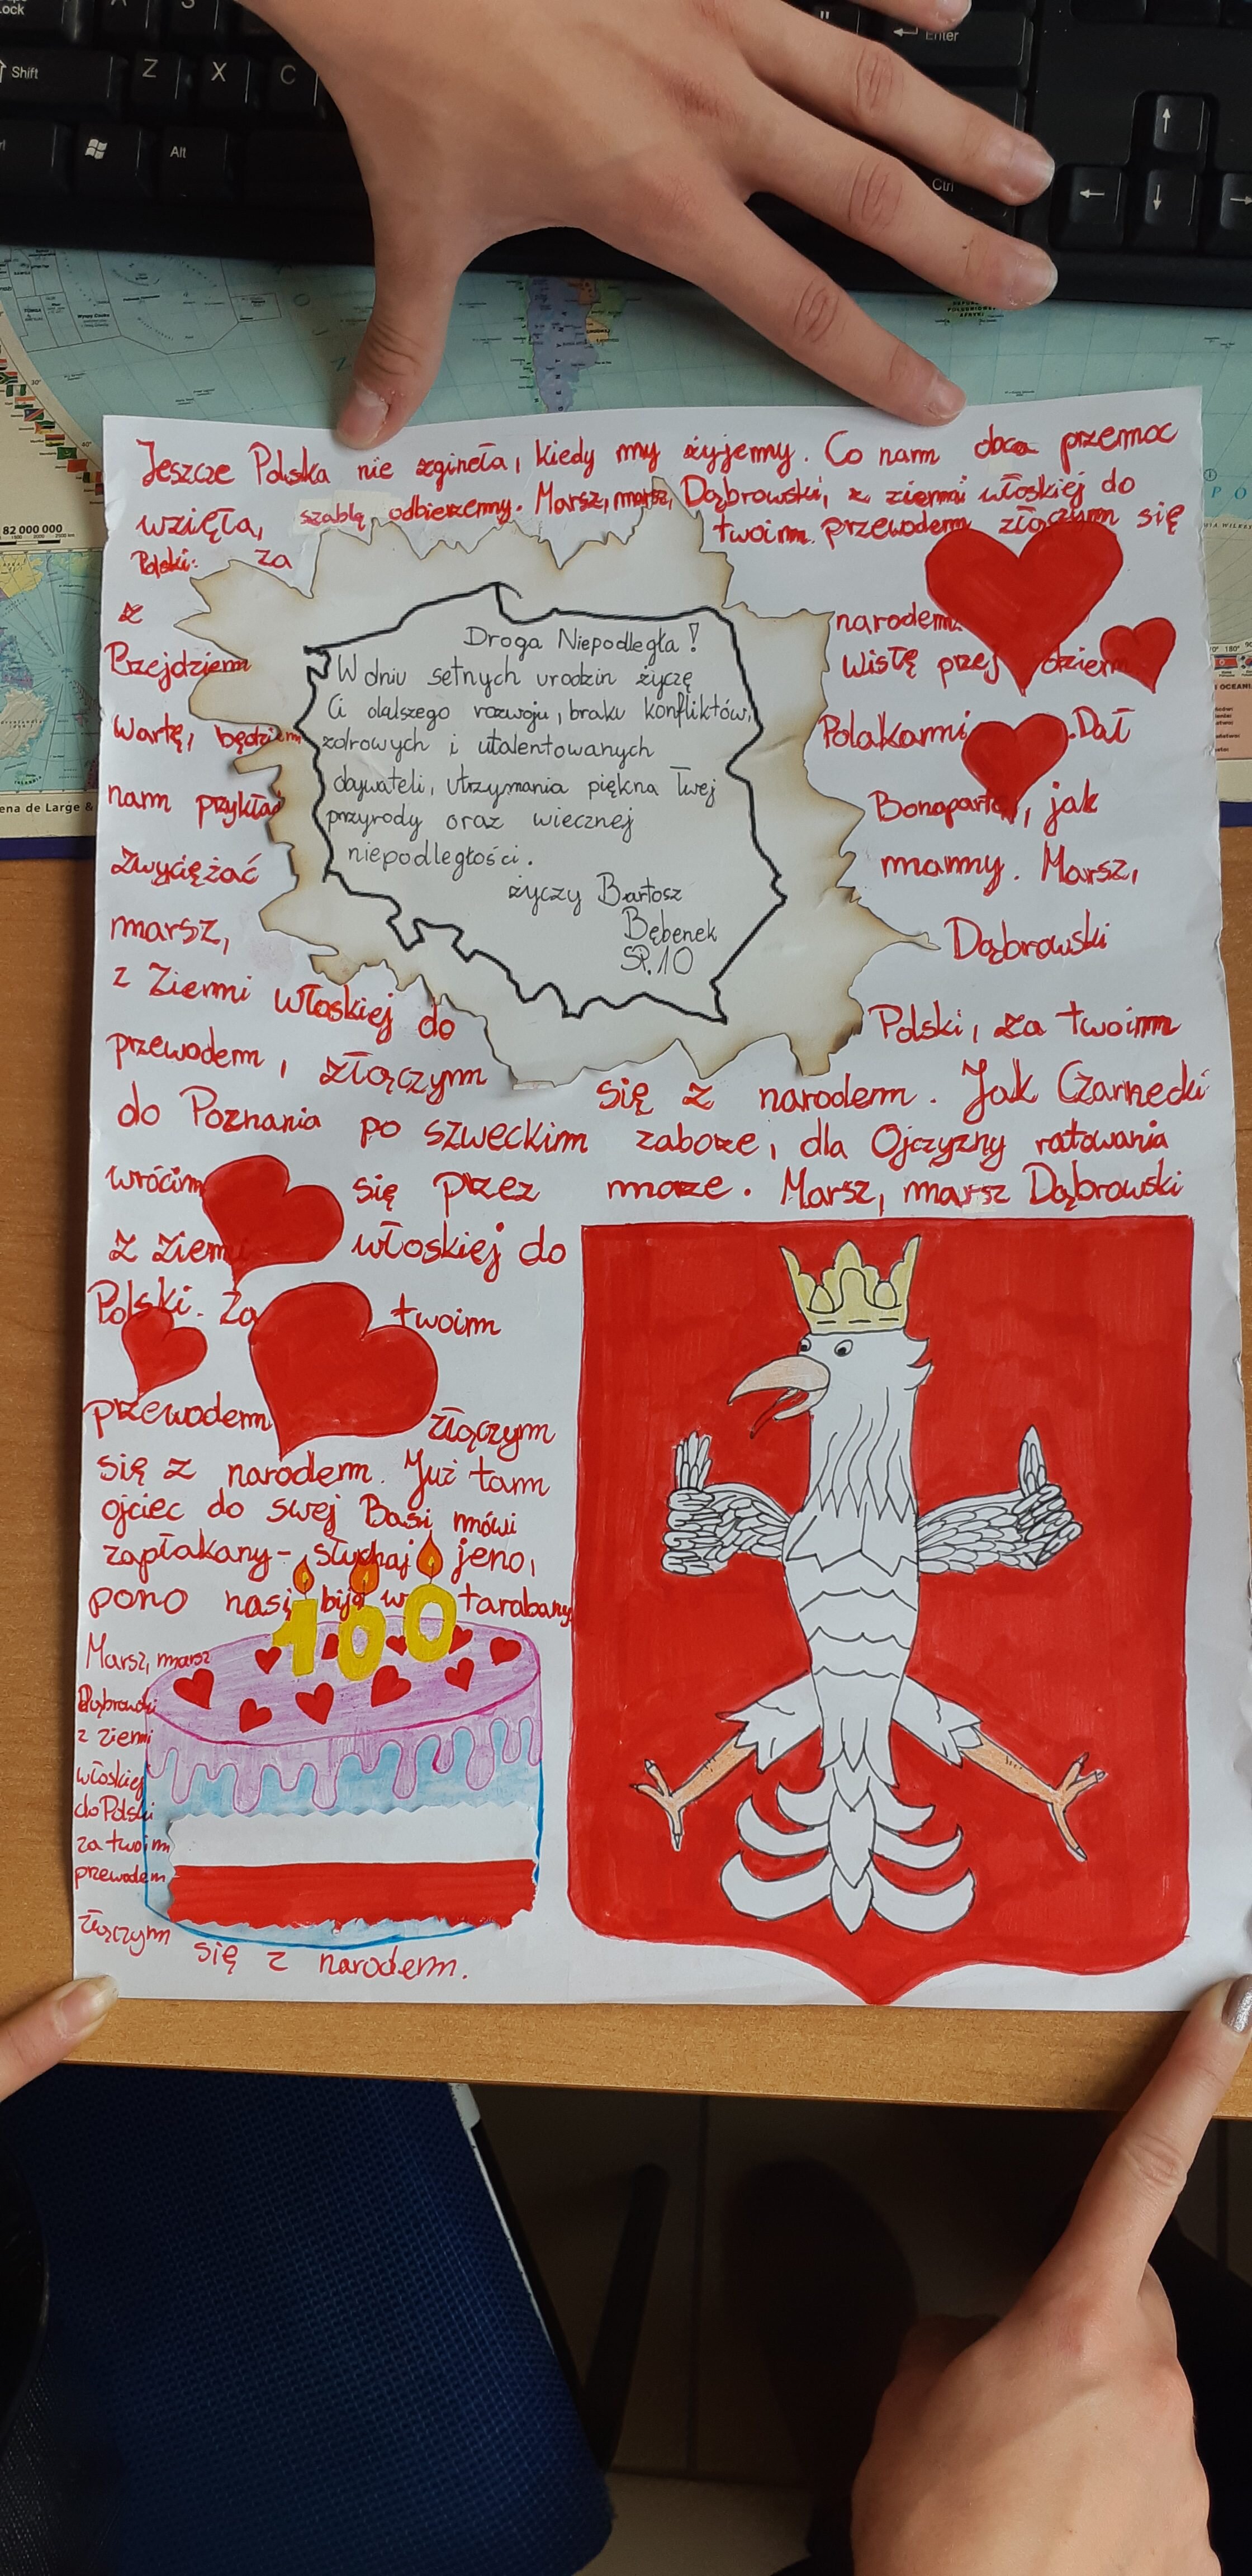 Lock
A
S
Enter
Shift
Z
X
C
Alt
Ctrl
82 000 000
Jeszcze Polska nie zgineła, kiedy my żyjemy. Co nam obca przemoc
wzięła, szablą odbierzemy. Marsz, marsz, Dąbrowski, z ziemi włoskiej do
Polski: za twoim przewodem złączym się
z narodem.
Przejdziem Wisłę przejdziem
Wartę, będziem Polakami. Dał
nam przykład Bonaparte, jak
zwyciężać mamy. Marsz,
marsz, Dąbrowski
z Ziemi włoskiej do Polski, za twoim
przewodem, złączym się z narodem. Jak Czarnecki
do Poznania po szweckim zaborze, dla Ojczyzny ratowania
wrócim się przez morze. Marsz, marsz Dąbrowski
z ziemi włoskiej do
Polski. Za twoim
przewodem złączym
się z narodem. Już tam
ojciec do swej Basi mówi
zapłakany- słuchaj jeno,
pono nasi biją w tarabany
Marsz, marsz
Dąbrowski
z ziemi
włoskiej
do Polski
za twoim
przewodem
złączym się z narodem.
Droga Niepodległa!
W dniu setnych urodzin życzę
Ci dalszego rozwoju, braku konfliktów,
zdrowych i utalentowanych
obywateli, utrzymania piękna Twej
przyrody oraz wiecznej
niepodległości.
życzy Bartosz
Bębenek
SP.10
100